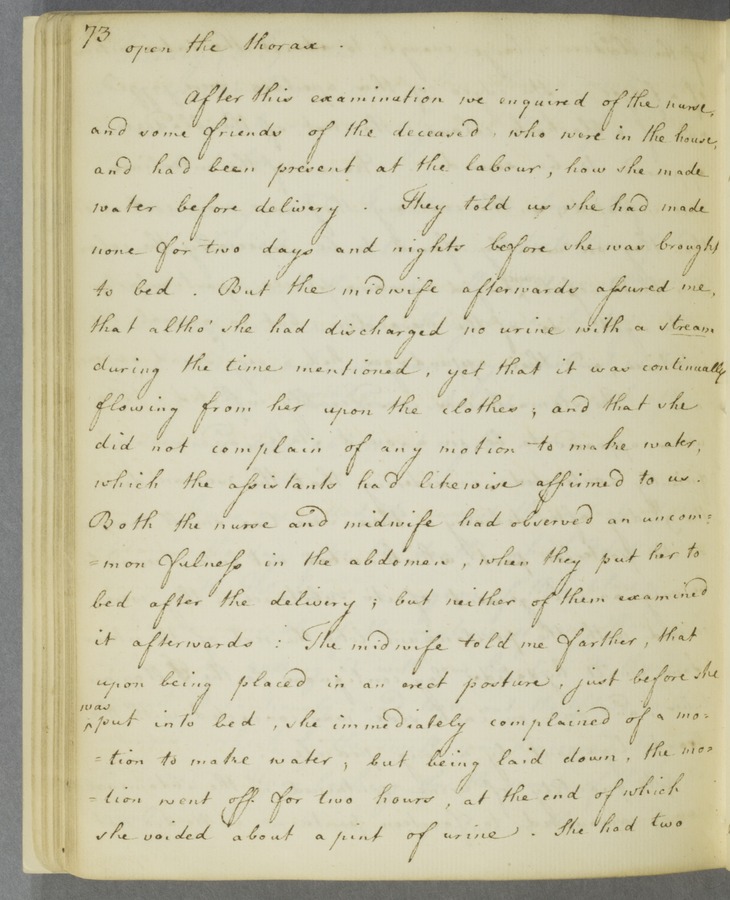 73
open the thorax .
After this examination we enquired of the nurse,
and some friends of the deceased, who were in the house,
and had been present at the labour, how she made
water before delivery . They told us she had made
none for two days and nights before she was brought
to bed . But the midwife afterwards aſsured me,
that altho' she had discharged no urine with a stream
during the time mentioned, yet that it was continually
flowing from her upon the clothes ; and that she
did not complain of any motion to make water,
which the aſsistants had likewise affirmed to us .
Both the nurse and midwife had observed an uncom=
=mon fulneſs in the abdomen , when they put her to
bed after the delivery ; but neither of them examined
it afterwards : The midwife told me farther, that
upon being placed in an erect posture , just before she
was
^put into bed , she immediately complained of a mo=
=tion to make water ; but being laid down, the mo=
=tion went off for two hours , at the end of which
she voided about a pint of urine . She had two